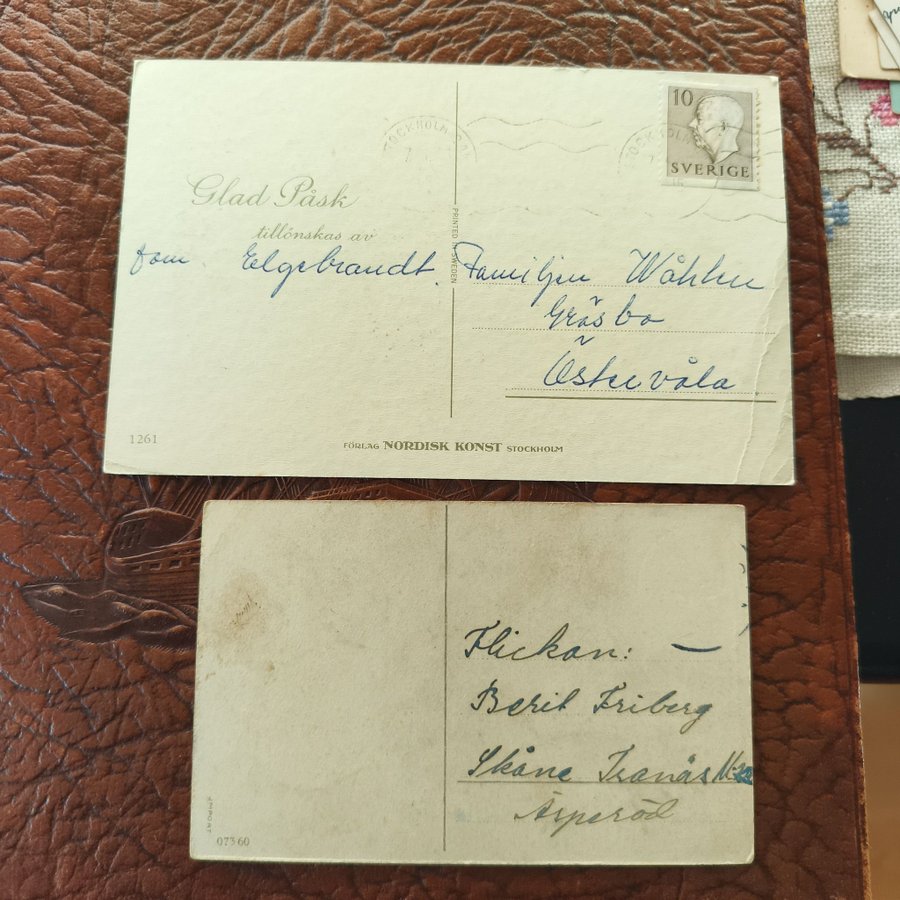 10
SVERIGE
STOCKHOLM
Glad Påsk
tillönskas av
fam. Elgebrandt.
PRINTED IN SWEDEN
Familjen Wåhlen
Gräsbo
Östervåla
1261
FÖRLAG NORDISK KONST STOCKHOLM
Flickan: —
Berit Friberg
Skåne Tranås
Äsperöd
IMPORT
07360